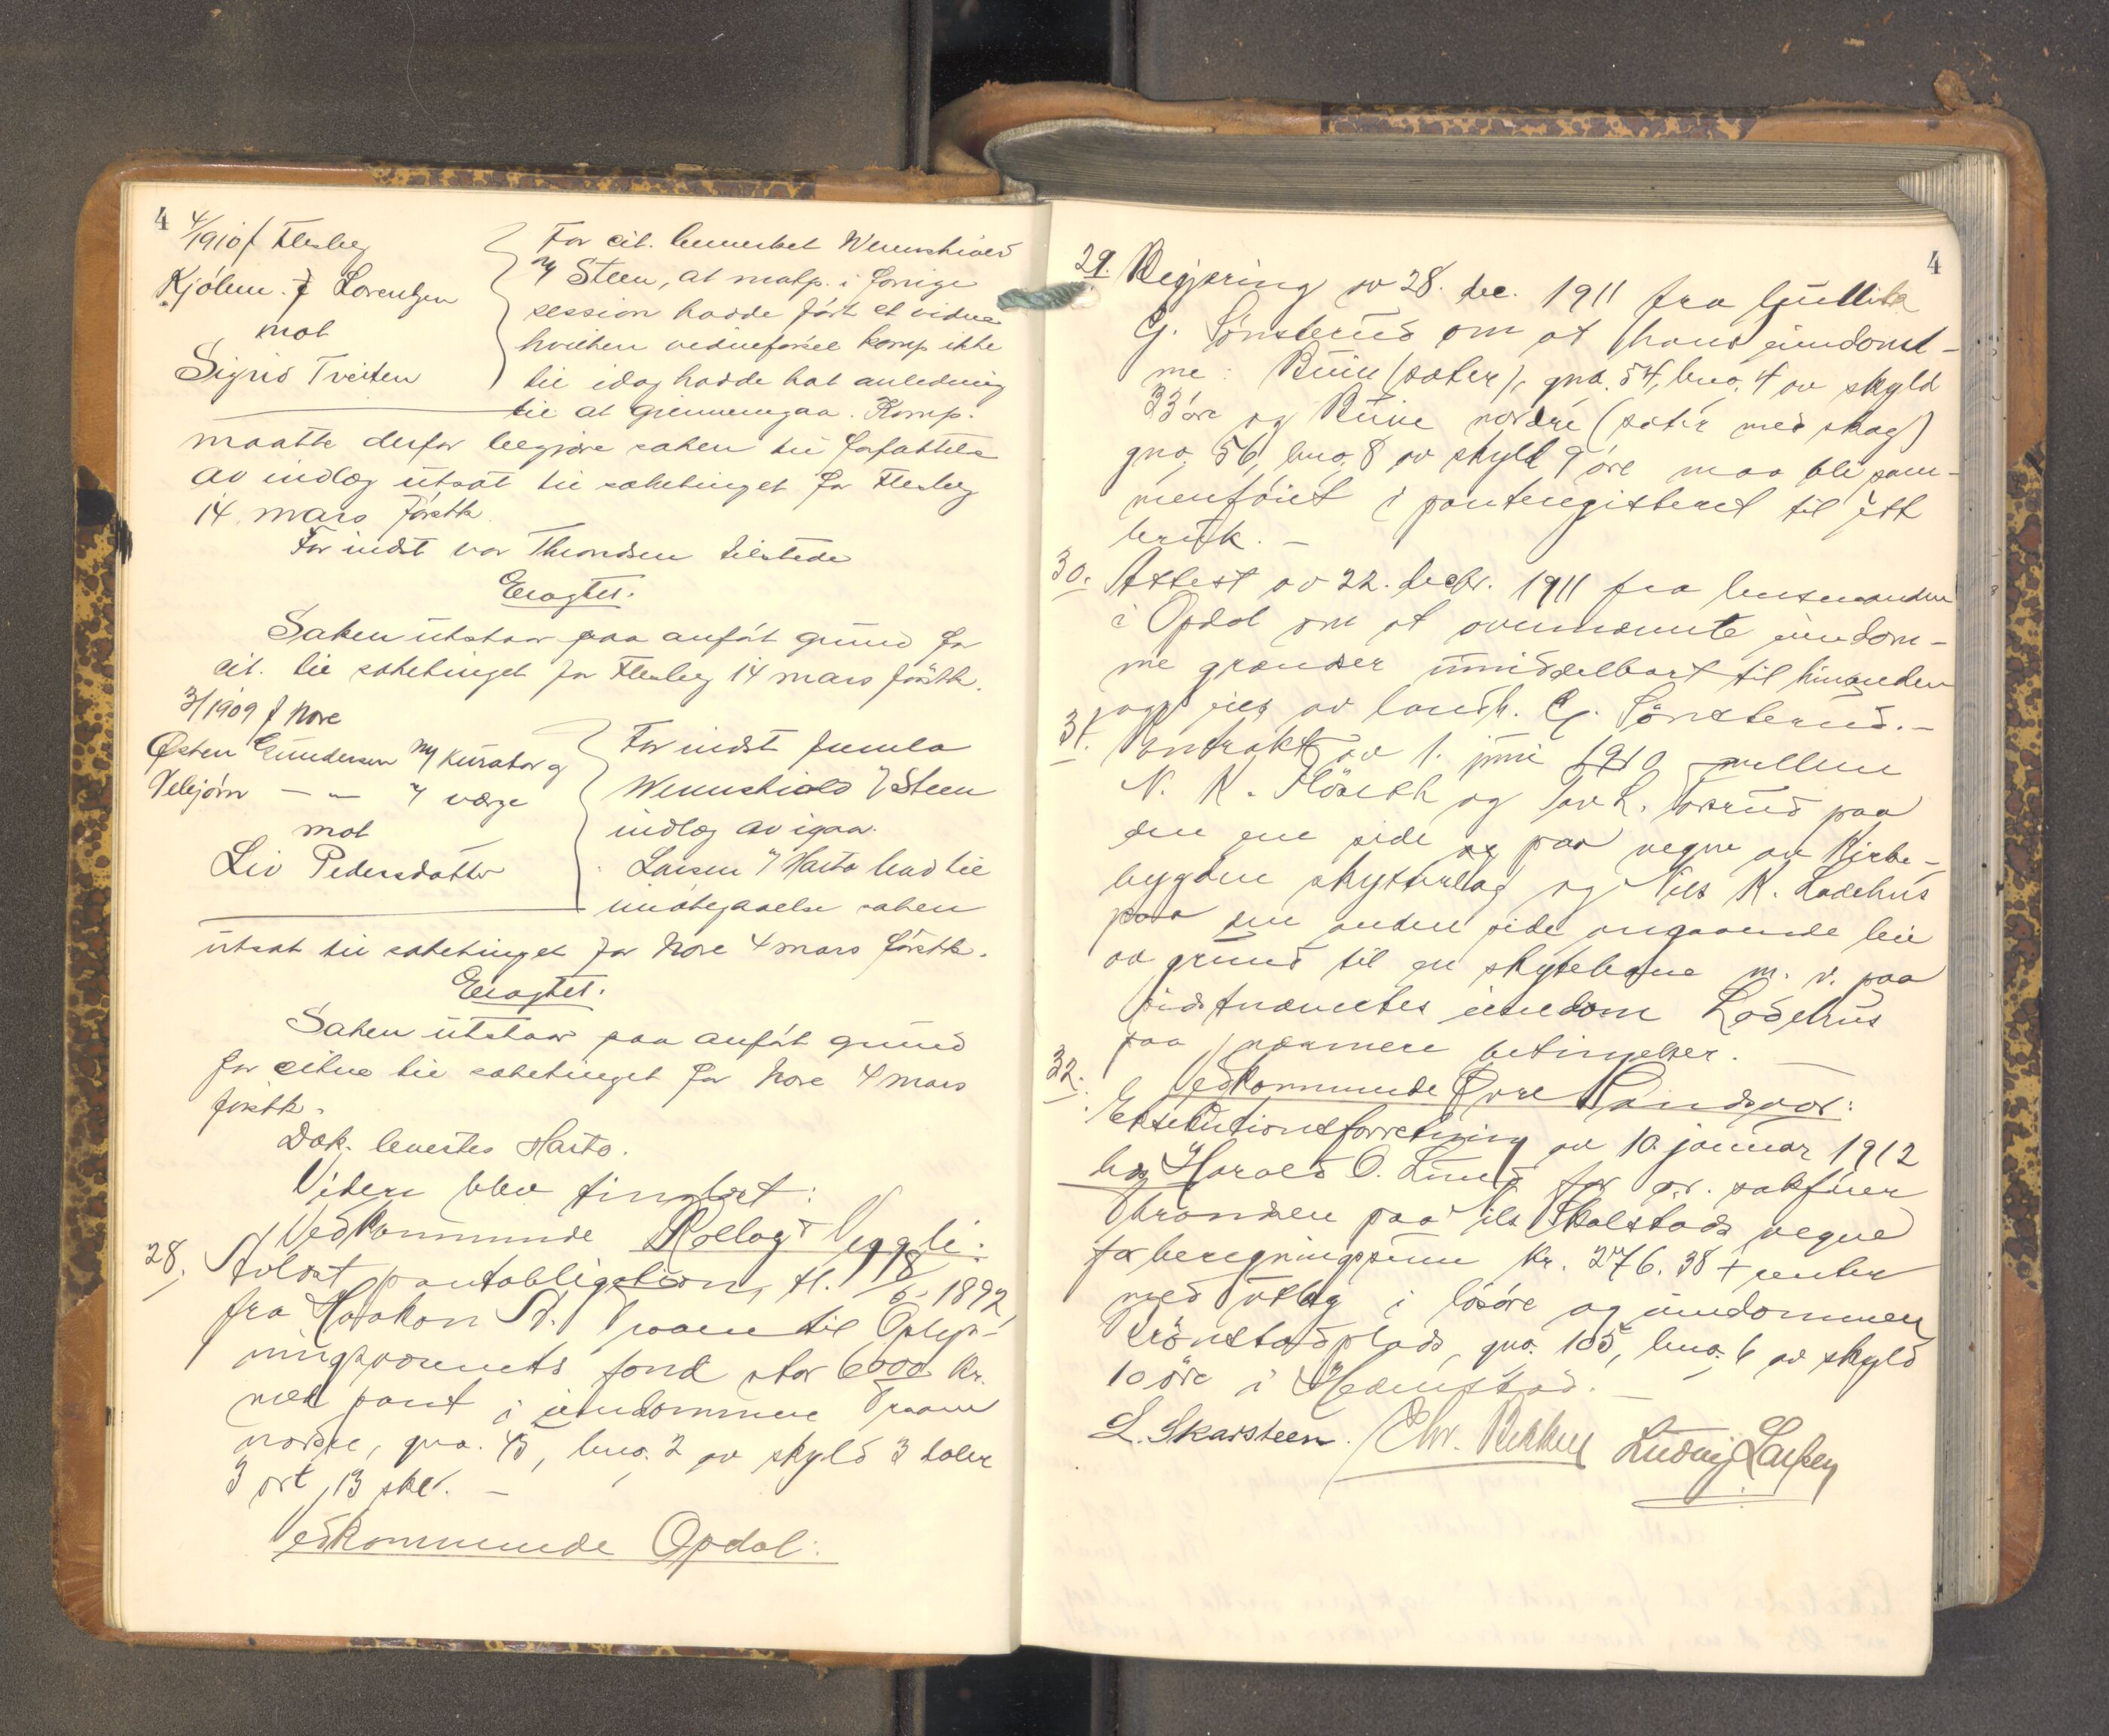 4
4/1910 f Flesberg
Kjölner J Lorentzen
mot
Sigrid Tveiten
For cit. bemerket Wennshiold
Steen, at motp. i forrige
session hadde fört et vidne
hvilken vidneförsel komp ikke
til idag hadde hat anledning
til at gjennemgaa. Komp.
maatte derfor begjære saken til forfattelse
av indlæg utsat til saketinget for Flesberg
14 mars förstk.
For indst var Throndsen tilstede
Eragtet.
Saken utstaar paa anfört grund for
cit. til saketinget for Flesberg 14 mars förstk.
3/1909 f Nore
Østen Gundersen kurator og
Vebjörn — „ — værge
mot
Liv Pedersdatter
For indst fremla
Wennshiold Steen
indlæg av igaar.
Larsen Harto bad til
imötegaaelse saken
utsat til saketinget for Nore 4 mars förstk.
Eragtet.
Saken utstaar paa anfört grund
for citne til saketinget for Nore 4 mars
förstk.
Dok. levertes Harto.
Videre blev tinglæst:
Vedkommende Rollag & Veggli:
28. Avlæst pantobligation, tl. 1892
fra Haakon St. Traaen til Oplys-
ningsvæsenets fond stor 6000 kr.
med pant i eiendommen Traaen
nordre, gno. 45, bno. 2 av skyld 3 daler
3 ort 13 skl. —
Vedkommende Opdal:
4
29. Begjæring av 28. dec. 1911 fra Gullik
G. Sönsterud om at hans eiendom-
me: Buin (sæter), gno. 54, bno. 4 av skyld
33 öre og Buin nordre (sæter med skog)
gno. 56, bno. 8 av skyld 9 öre maa bli sam-
menföiet i pantergisteret til ett
bruk. —
30. Attest av 22. decbr. 1911 fra lensmanden
i Opdal om at ovennævnte eiendom-
me grænser umiddelbart til hinanden
og eies av landh. G. Sönsterud. —
31. Kontrakt av 1. juni 1910 mellem
N. K. og paa
den ene side og paa vegne av Kirke-
bygden skytterlag og Nils K. Ladehus
paa den anden side angaaende leie
av grund til en skytebane m. v. paa
sidstnævntes eiendom Ladehus
paa nærmere betingelser. —
32. Vedkommende Øvre Sandsvær:
Eksekutionsforretning av 10. januar 1912
hos Harald O. Lund for o.r. sakförer
Throndsen paa Nils Skalstads vegne
for beregningssum kr. 276.38 + renter
med utlæg i lösöre og eiendommen
Trönstadplads, gno. 105, bno. 6 av skyld
10 öre i Hedenstad. —
L. Skarsteen. Chr. Bekken Ludvig Larsen